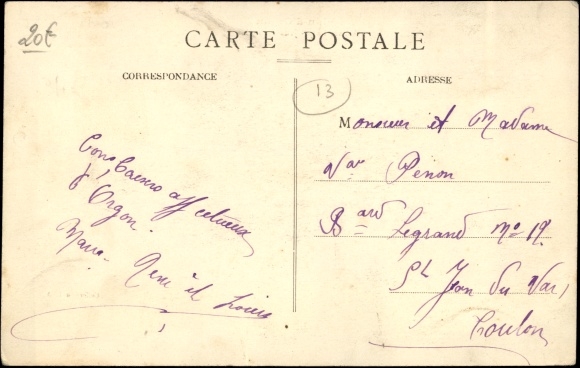 20€
CARTE POSTALE
CORRESPONDANCE
ADRESSE
13
Monsieur et Madame
Penon
Bard Legrand No 19.
St Jean du Var,
Toulon
affectueux
d'Orgon.
René et Louis